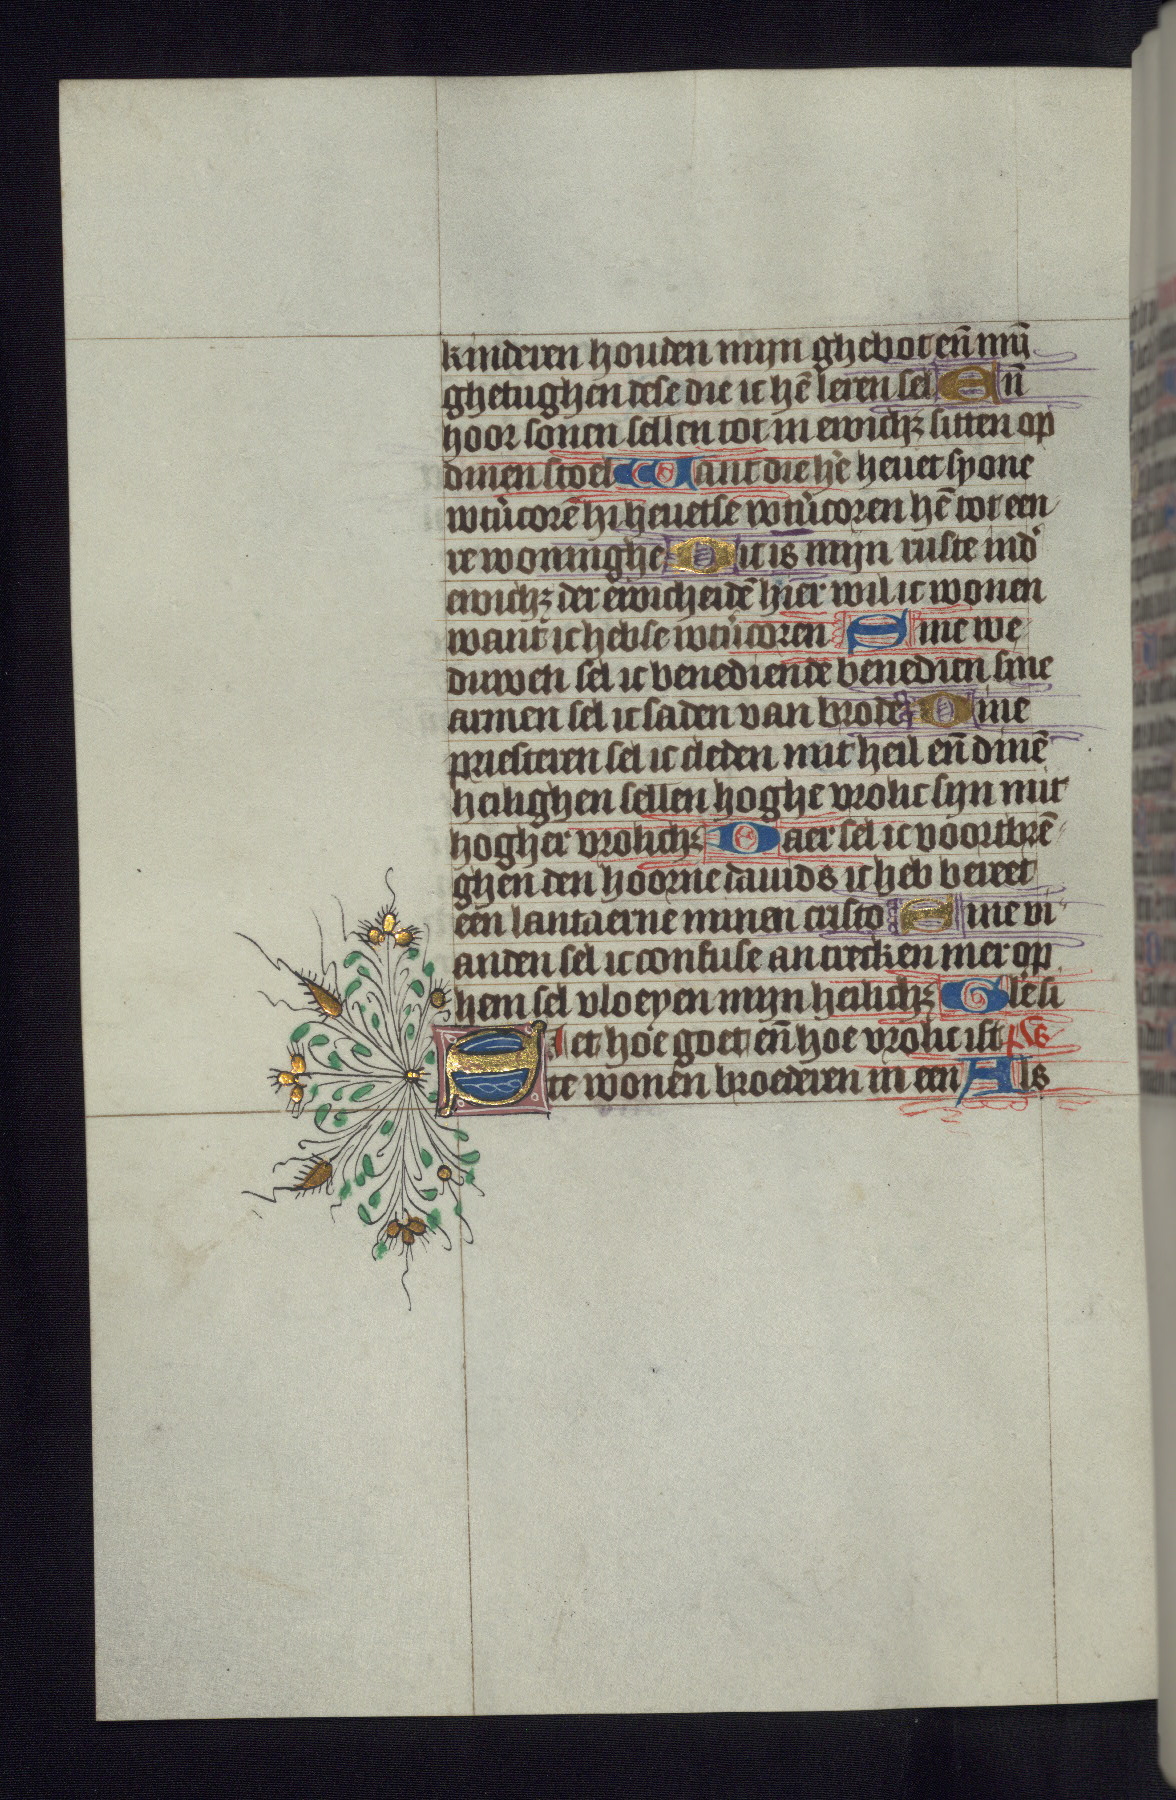 kinderen houden mijn ghebot eñ mijͫ
ghetughen dese die ic hē leren sel Eñ
hoor sonen sellen tot in ewichꝫ sitten op
dinen stoel Want die hē heuet syone
wtùcorē hi heuetse wtùcoren hē tot een
re woninghe Dit is mijn ruste in dʼ
ewichꝫ der ewicheidē hier wil ic wonen
want ic hebse wtùcoren Sine we
duwen sel ic benediende benedien sine
armen sel ic saden van brode Sine
priesteren sel ic cleden mit heil eñ dinē
heilighen sellen hoghe vrolic sijn mit
hogher vrolichꝫ Daer sel ic voortbrē
ghen den hoorne dauids ic heb bereet
een lantaerne minen cristo Sine vi
anden sel ic confuse an trecken mer op
hem sel vloeyen mijn heilichꝫ Glesi
Siet hoe goet eñ hoe vrolic ist ps
te wonen broederen in een Als